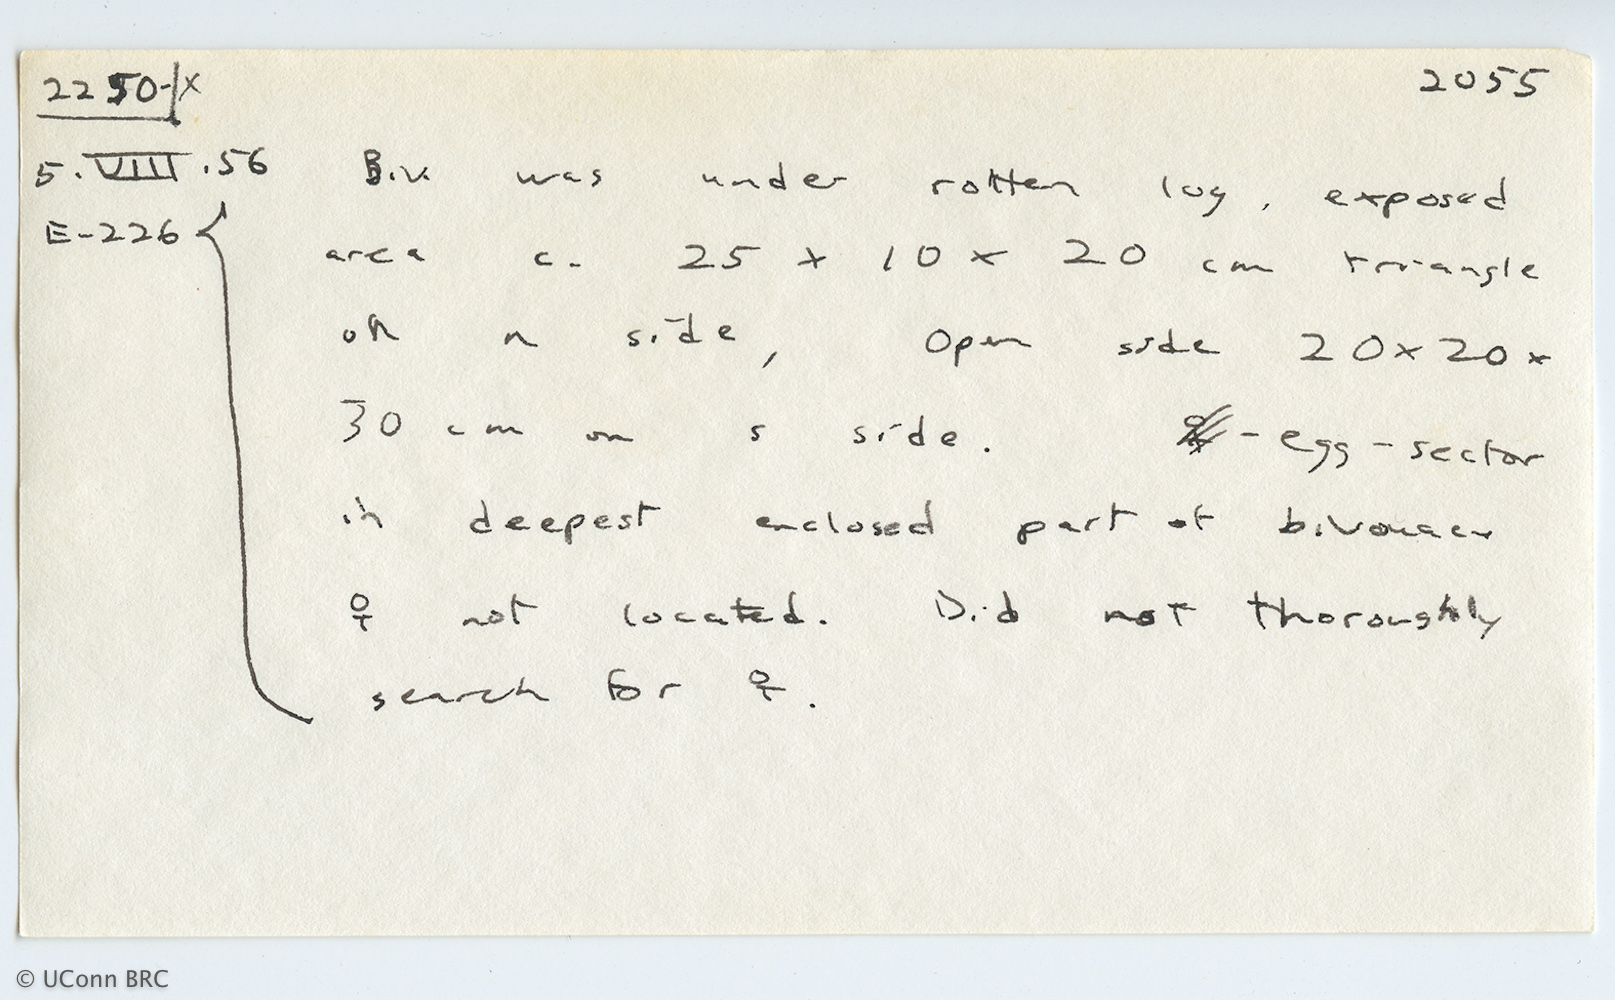 2250-x 2055
5.VIII.56 Biv. was under rotten log, exposed
E-226 area c. 25 x 10 x 20 cm triangle
on n side, Open side 20 x 20 x
30 cm on s side. - egg - sector
in deepest enclosed part of bivouac
♀ not located. Did not thoroughly
search for ♀.
© UConn BRC